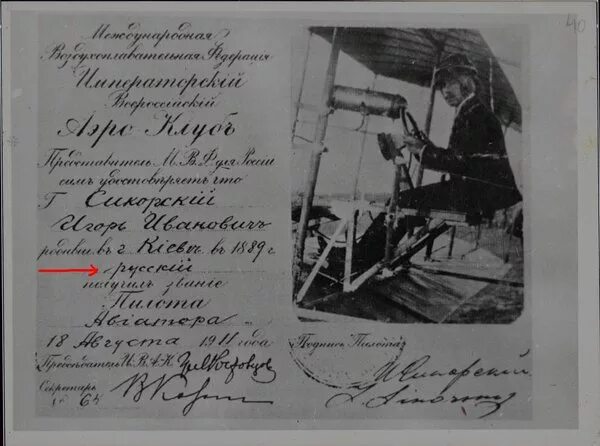 Международная
Воздухоплавательная Федерація
Императорскій
Всероссійскій
Аэро-Клубъ
Представитель М. В. Ф. для Россіи
симъ удостовѣряетъ что
Г Сикорскій
Игорь Ивановичъ
родивш въ г Кіевѣ въ 1889 г
русскій
получилъ званіе
Пилота
Авіатора
18 Августа 1911 года
Предсѣдатель И. В. А. К.
Секретарь
№ 64
Подпись Пилота
И Сикорский
I. Sikorsky
40